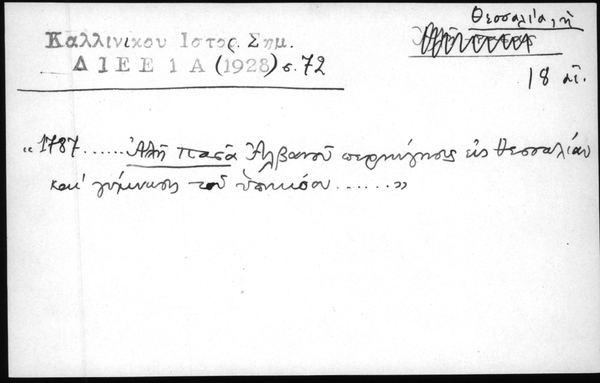 Θεσσαλία, ἡ
Καλλινίκου Ιστορ. Σημ.
ΔΙΕΕ 1 Α (1928) σ. 72
18 αἰ.
«1787...... Ἀλῆ πασᾶ Ἀλβανοῦ περιήγησις εἰς Θεσσαλίαν
καὶ γύμνωσις τοῦ ὑπηκόου ......»